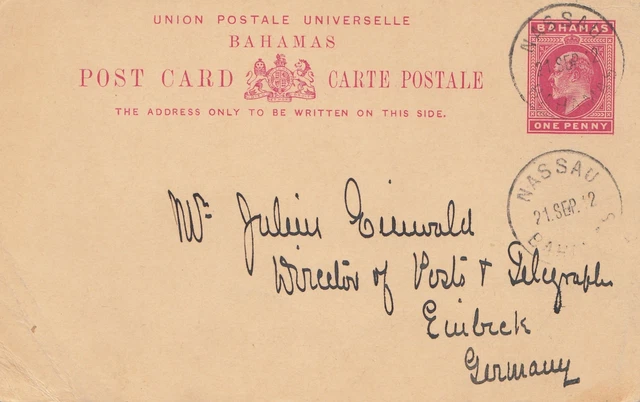 UNION POSTALE UNIVERSELLE
BAHAMAS
POST CARD CARTE POSTALE
THE ADDRESS ONLY TO BE WRITTEN ON THIS SIDE.
BAHAMAS
ONE PENNY
NASSAU
21 SEP
NASSAU
21.SEP.12
BAHAMAS
Mr. Julius
Director of Posts & Telegraphs
Einbeck
Germany